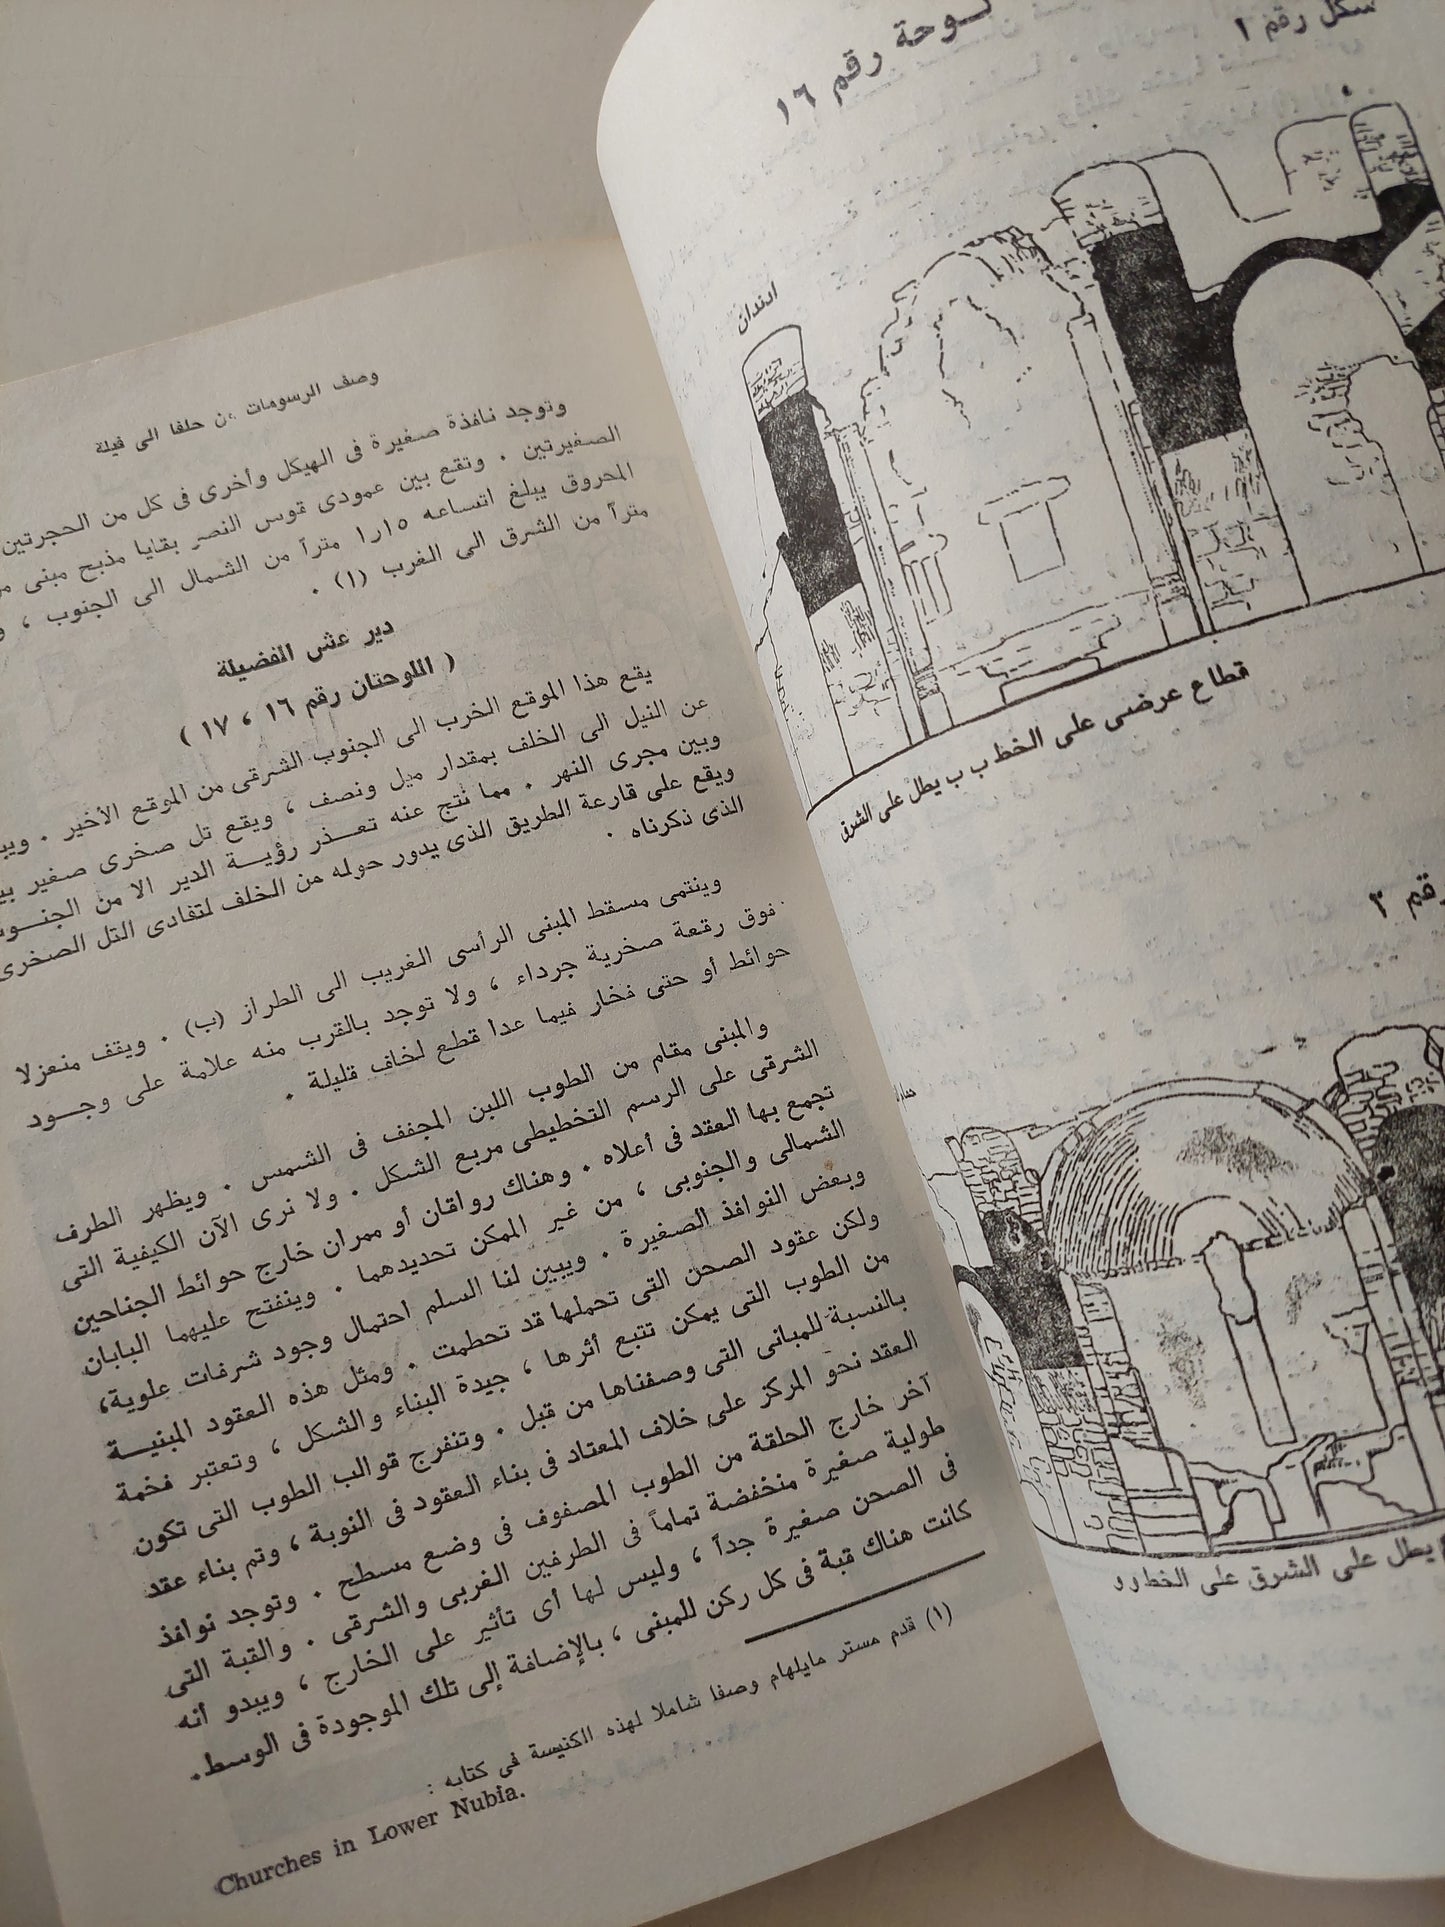 وصف الرسومات من حلفا الى فيلة
وتوجد نافذة صغيرة فى الهيكل وأخرى فى كل من الحجرتين
الصغيرتين . وتقع بين عمودى قوس النصر بقايا مذبح مبنى
المحروق يبلغ اتساعه ١٥ر١ متراً من الشمال الى الجنوب ،
متراً من الشرق الى الغرب (١) .
دير عش الفضيلة
( اللوحتان رقم ١٦ ، ١٧ )
يقع هذا الموقع الخرب الى الجنوب الشرقى من الموقع الأخير .
عن النيل الى الخلف بمقدار ميل ونصف ، ويقع تل صخرى صغير
وبين مجرى النهر . مما نتج عنه تعـــذر رؤيـــة الدير الا من
ويقع على قارعة الطريق الذى يدور حوله من الخلف لتفادى التل الصخرى
الذى ذكرناه .
وينتمى مسقط المبنى الرأسى الغريب الى الطراز (ب) . ويقف منعزلا
فوق رقعة صخرية جرداء ، ولا توجد بالقرب منه علامة على وجـــود
حوائط أو حتى فخار فيما عدا قطع لخاف قليلة .
والمبنى مقام من الطوب اللبن المجفف فى الشمس . ويظهر الطرف
الشرقى على الرسم التخطيطى مربع الشكل . ولا نرى الآن الكيفية التى
تجمع بها العقد فى أعلاه . وهناك رواقان أو ممران خارج حوائط الجناحين
الشمالى والجنوبى ، من غير الممكن تحديدهما . وينفتح عليهما البابان
وبعض النوافذ الصغيرة . ويبين لنا السلم احتمال وجود شرفات علوية،
ولكن عقود الصحن التى تحملها قد تحطمت . ومثل هذه العقود المبنيـــة
من الطوب التى يمكن تتبع أثرها ، جيدة البناء والشكل ، وتعتبر فخمة
بالنسبة للمبانى التى وصفناها من قبل . وتنفرج قوالب الطوب التى تكون
العقد نحو المركز على خلاف المعتاد فى بناء العقود فى النوبة ، وتم بناء عقد
آخر خارج الحلقة من الطوب المصفوف فى وضع مسطح . وتوجد نوافذ
طولية صغيرة منخفضة تماماً فى الطرفين الغربى والشرقى . والقبة التى
فى الصحن صغيرة جداً ، وليس لها أى تأثير على الخارج ، ويبدو أنه
كانت هناك قبة فى كل ركن للمبنى ، بالإضافة إلى تلك الموجودة فى الوسط.
(١) قدم مستر مايلهام وصفا شاملا لهذه الكنيسة فى كتابه :
Churches in Lower Nubia.
لـوحة رقم ١٦
شكل رقم ١
ادندان
قطاع عرضى على الخط ب ب يطل على الشرق
رقم ٣
يطل على الشرق على الخط ر ر